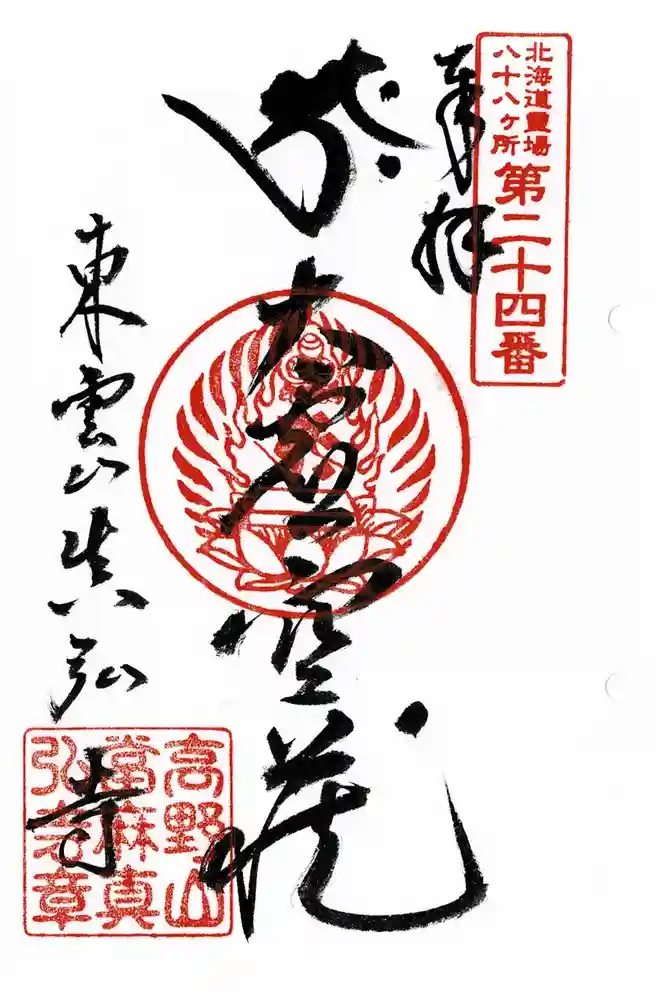 北海道霊場
八十八ヶ所 第二十四番
奉拝
大虚空蔵
東雲山真弘寺
高野山
當麻真
弘寺章